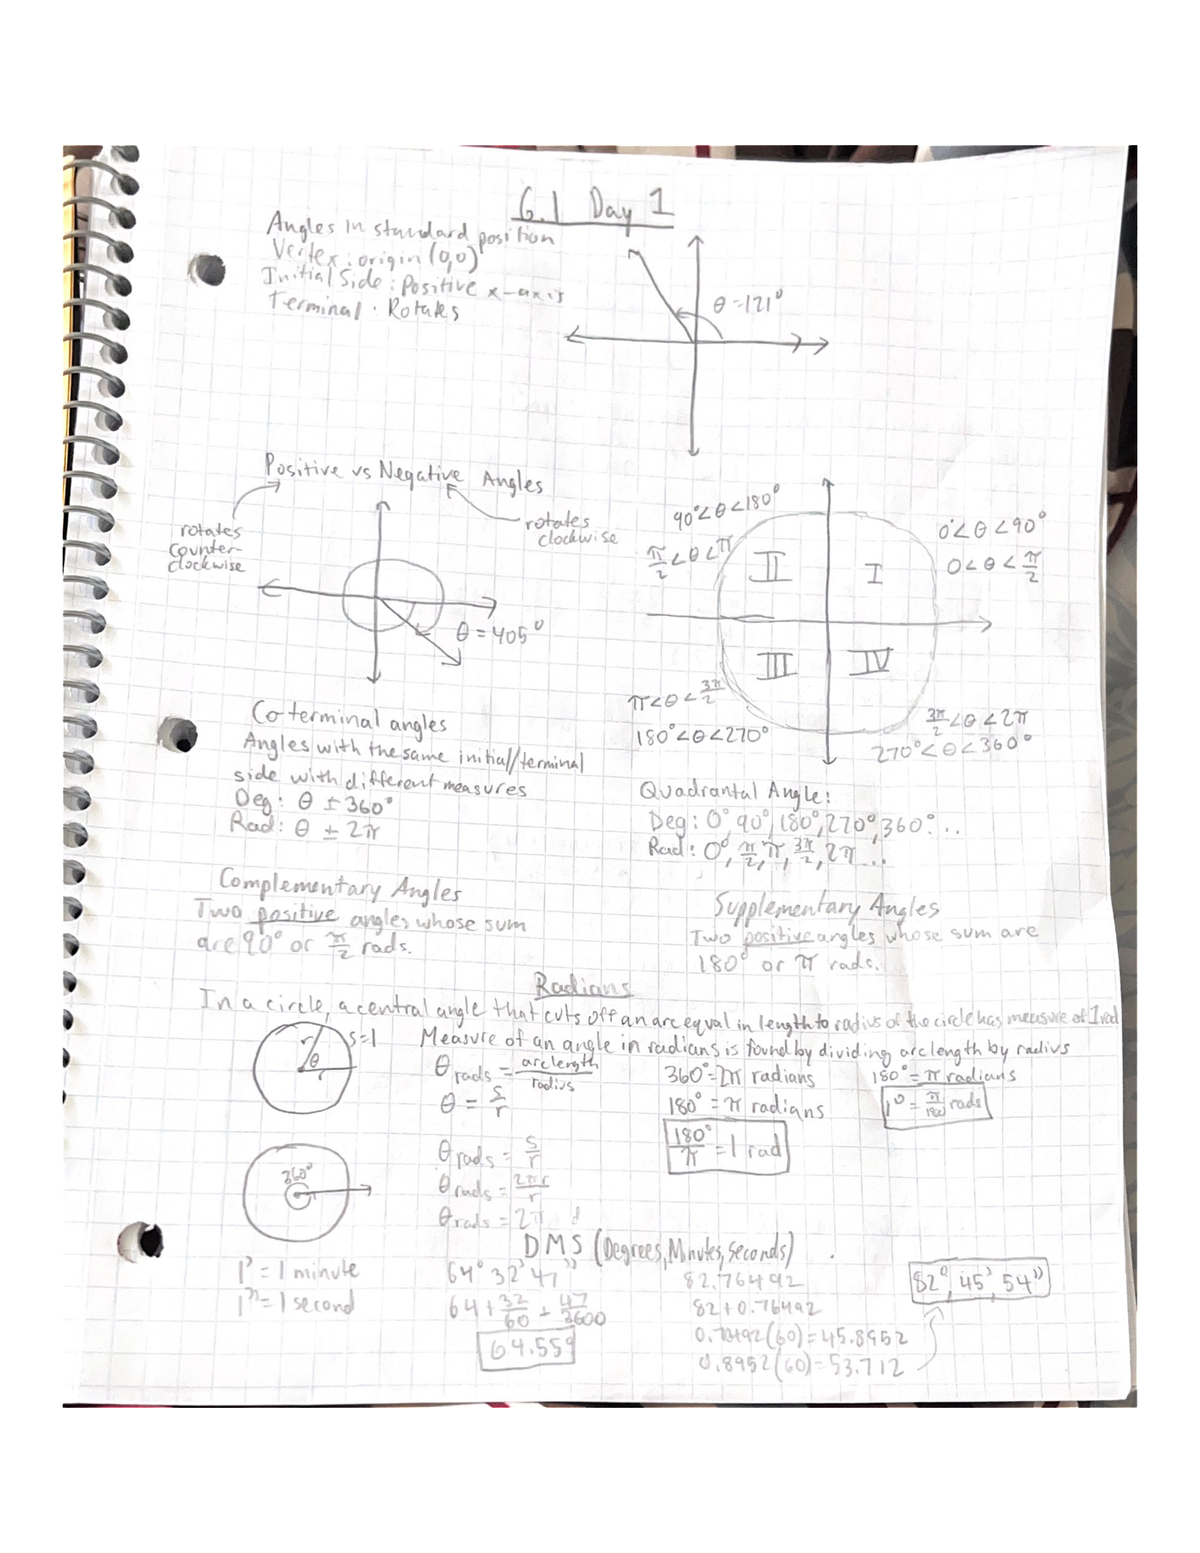 6.1 Day 1
Angles in standard position
Vertex: origin (0,0)
Initial Side: Positive x-axis
Terminal: Rotates
θ = 121°
Positive vs Negative Angles
rotates counter-clockwise
rotates clockwise
θ = 405°
90°<θ<180°
π/2<θ<π
0°<θ<90°
0<θ<π/2
II
I
III
IV
π<θ<3π/2
180°<θ<270°
3π/2<θ<2π
270°<θ<360°
Co-terminal angles
Angles with the same initial/terminal
side with different measures
Deg: θ ± 360°
Rad: θ ± 2π
Quadrantal Angle:
Deg: 0°, 90°, 180°, 270°, 360°...
Rad: 0°, π/2, π, 3π/2, 2π...
Complementary Angles
Two positive angles whose sum
are 90° or π/2 rads.
Supplementary Angles
Two positive angles whose sum are
180° or π rads.
Radians
In a circle, a central angle that cuts off an arc equal in length to radius of the circle has measure of 1 rad
r θ r s=1
Measure of an angle in radians is found by dividing arc length by radius
θ rads = arc length/radius
θ = s/r
360° = 2π radians
180° = π radians
180°/π = 1 rad
180° = π radians
1° = π/180 rads
360°
θ rads = s/r
θ rads = 2πr/r
θ rads = 2π
DMS (Degrees, Minutes, Seconds)
1' = 1 minute
1" = 1 second
64° 32' 47"
64 + 32/60 + 47/3600
64.55°
82.76492
82+0.76492
0.76492(60)=45.8952
0.8952(60)=53.712
82°, 45' 54"